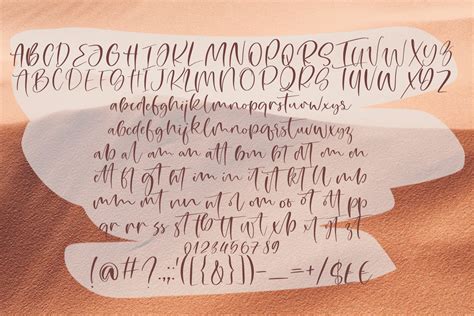 ABCDEFGHIJKLMNOPQRSTUVWXYZ
ABCDEFGHIJKLMNOPQRSTUVWXYZ
abcdefghijklmnopqrstuvwxyz
abcdefghijklmnopqrstuvwxyz
ab al am an att bm bt ott om on
itt tt
mm mt nn ol om ot ott pp
rr ss st tt ut xb xt
0123456789
!@#?.,:;'([{&}])-_=+/$££